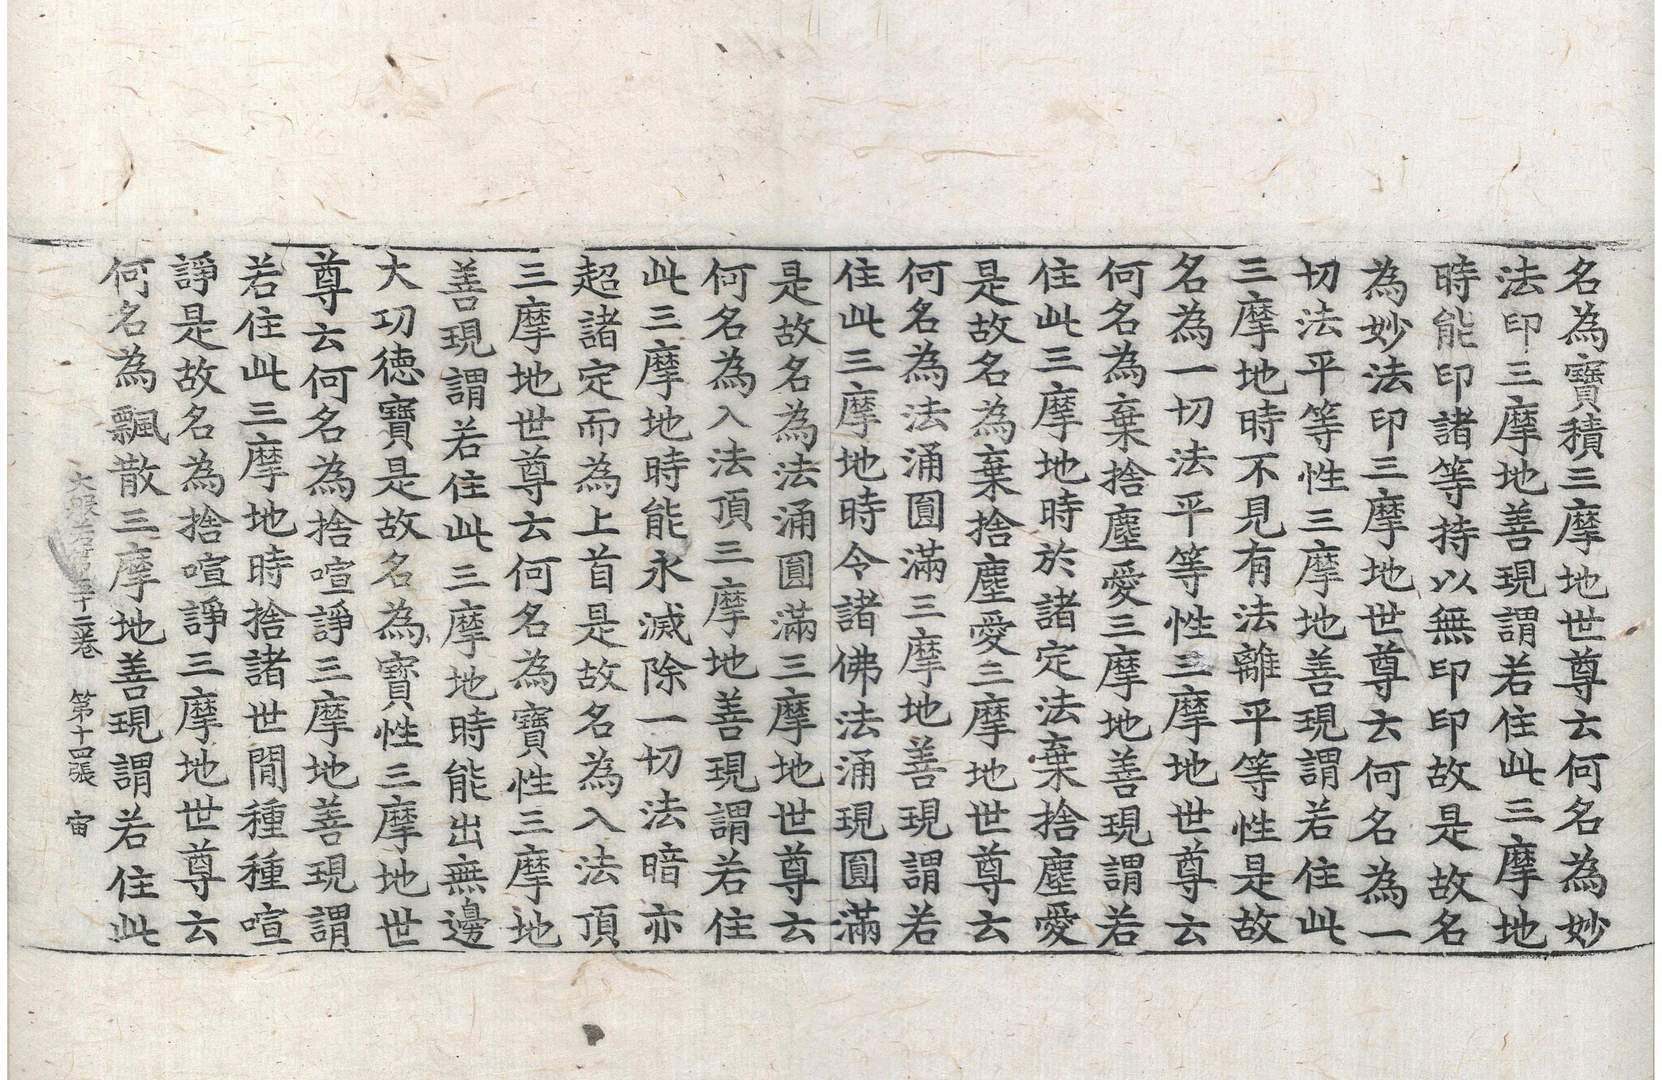 名為寶積三摩地世尊云何名為妙
法印三摩地善現謂若住此三摩地
時能印諸等持以無印印故是故名
為妙法印三摩地世尊云何名為一
切法平等性三摩地善現謂若住此
三摩地時不見有法離平等性是故
名為一切法平等性三摩地世尊云
何名為棄捨塵愛三摩地善現謂若
住此三摩地時於諸定法棄捨塵愛
是故名為棄捨塵愛三摩地世尊云
何名為法涌圓滿三摩地善現謂若
住此三摩地時令諸佛法涌現圓滿
是故名為法涌圓滿三摩地世尊云
何名為入法頂三摩地善現謂若住
此三摩地時能永滅除一切法暗亦
超諸定而為上首是故名為入法頂
三摩地世尊云何名為寶性三摩地
善現謂若住此三摩地時能出無邊
大功德寶是故名為寶性三摩地世
尊云何名為捨喧諍三摩地善現謂
若住此三摩地時捨諸世間種種喧
諍是故名為捨喧諍三摩地世尊云
何名為飄散三摩地善現謂若住此
大般若第五十二卷 第十四張 宙